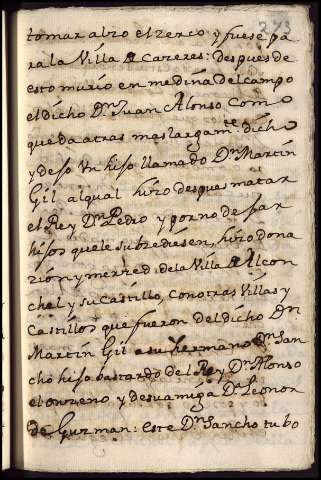 273
tomar alzo el zerco y fuese pa
ra la Villa de Cazeres: despues de
esto murio en medina del campo
el dicho Dn Juan Alonso como
queda atras mas largamte dicho
y dejo vn hijo llamado Dn Martin
Gil al qual hizo despues matar
el Rey Dn Pedro y por no dejar
hijos que le subzediesen, hizo dona
zion y merzed de la Villa de Alcon
chel y su castillo, con otras Villas y
Castillos que fueron del dicho Dn
Martin Gil a su hermano Dn San
cho hijo bastardo del Rey Dn Alonso
el onzeno y de su amiga Da Leonor
de Guzman: este Dn Sancho tubo